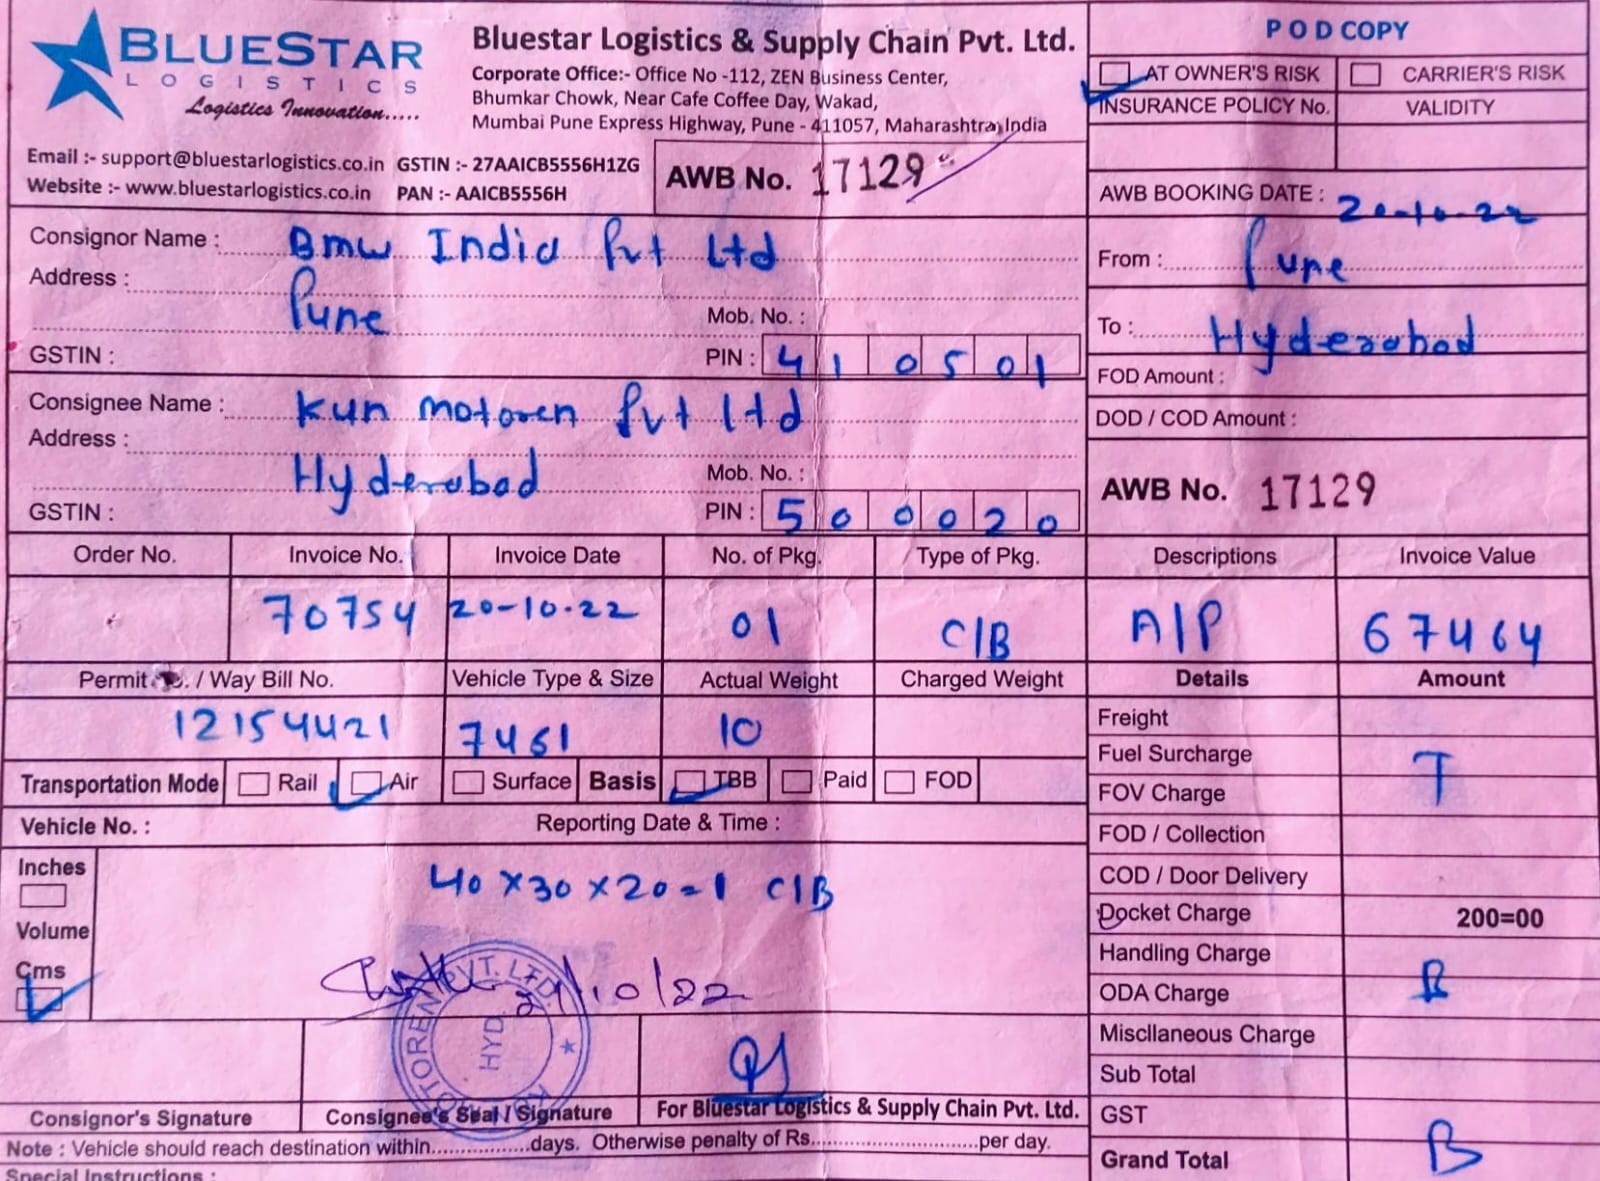 BLUESTAR
LOGISTICS
Logistics Innovation.....
Bluestar Logistics & Supply Chain Pvt. Ltd.
Corporate Office:- Office No -112, ZEN Business Center,
Bhumkar Chowk, Near Cafe Coffee Day, Wakad,
Mumbai Pune Express Highway, Pune - 411057, Maharashtra, India
Email :- support@bluestarlogistics.co.in GSTIN :- 27AAICB5556H1ZG
Website :- www.bluestarlogistics.co.in PAN :- AAICB5556H
AWB No. 17129
POD COPY
AT OWNER'S RISK CARRIER'S RISK
INSURANCE POLICY No. VALIDITY
AWB BOOKING DATE : 20-10-22
Consignor Name : Bmw India Pvt Ltd
Address :
Pune
Mob. No. :
GSTIN :
PIN : 410501
From : Pune
To : Hyderabad
FOD Amount :
DOD / COD Amount :
Consignee Name : Kun motoren Pvt ltd
Address :
Hyderabad
Mob. No. :
GSTIN :
PIN : 500020
AWB No. 17129
Order No. Invoice No. Invoice Date No. of Pkg. Type of Pkg. Descriptions Invoice Value
70754 20-10-22 01 C/B A/P 67464
Permit / Way Bill No. Vehicle Type & Size Actual Weight Charged Weight Details Amount
12154421 7461 10
Transportation Mode Rail Air Surface Basis TBB Paid FOD
Vehicle No. : Reporting Date & Time :
Inches
Volume
Cms
40 x 30 x 20 = 1 C/B
21/10/22
MOTOREN PVT. LTD.
HYD
Freight
Fuel Surcharge T
FOV Charge
FOD / Collection
COD / Door Delivery
Docket Charge 200=00
Handling Charge
ODA Charge B
Miscllaneous Charge
Sub Total
GST
Grand Total B
Consignor's Signature Consignee's Seal / Signature For Bluestar Logistics & Supply Chain Pvt. Ltd.
Note : Vehicle should reach destination within.................days. Otherwise penalty of Rs............................per day.
Special Instructions :